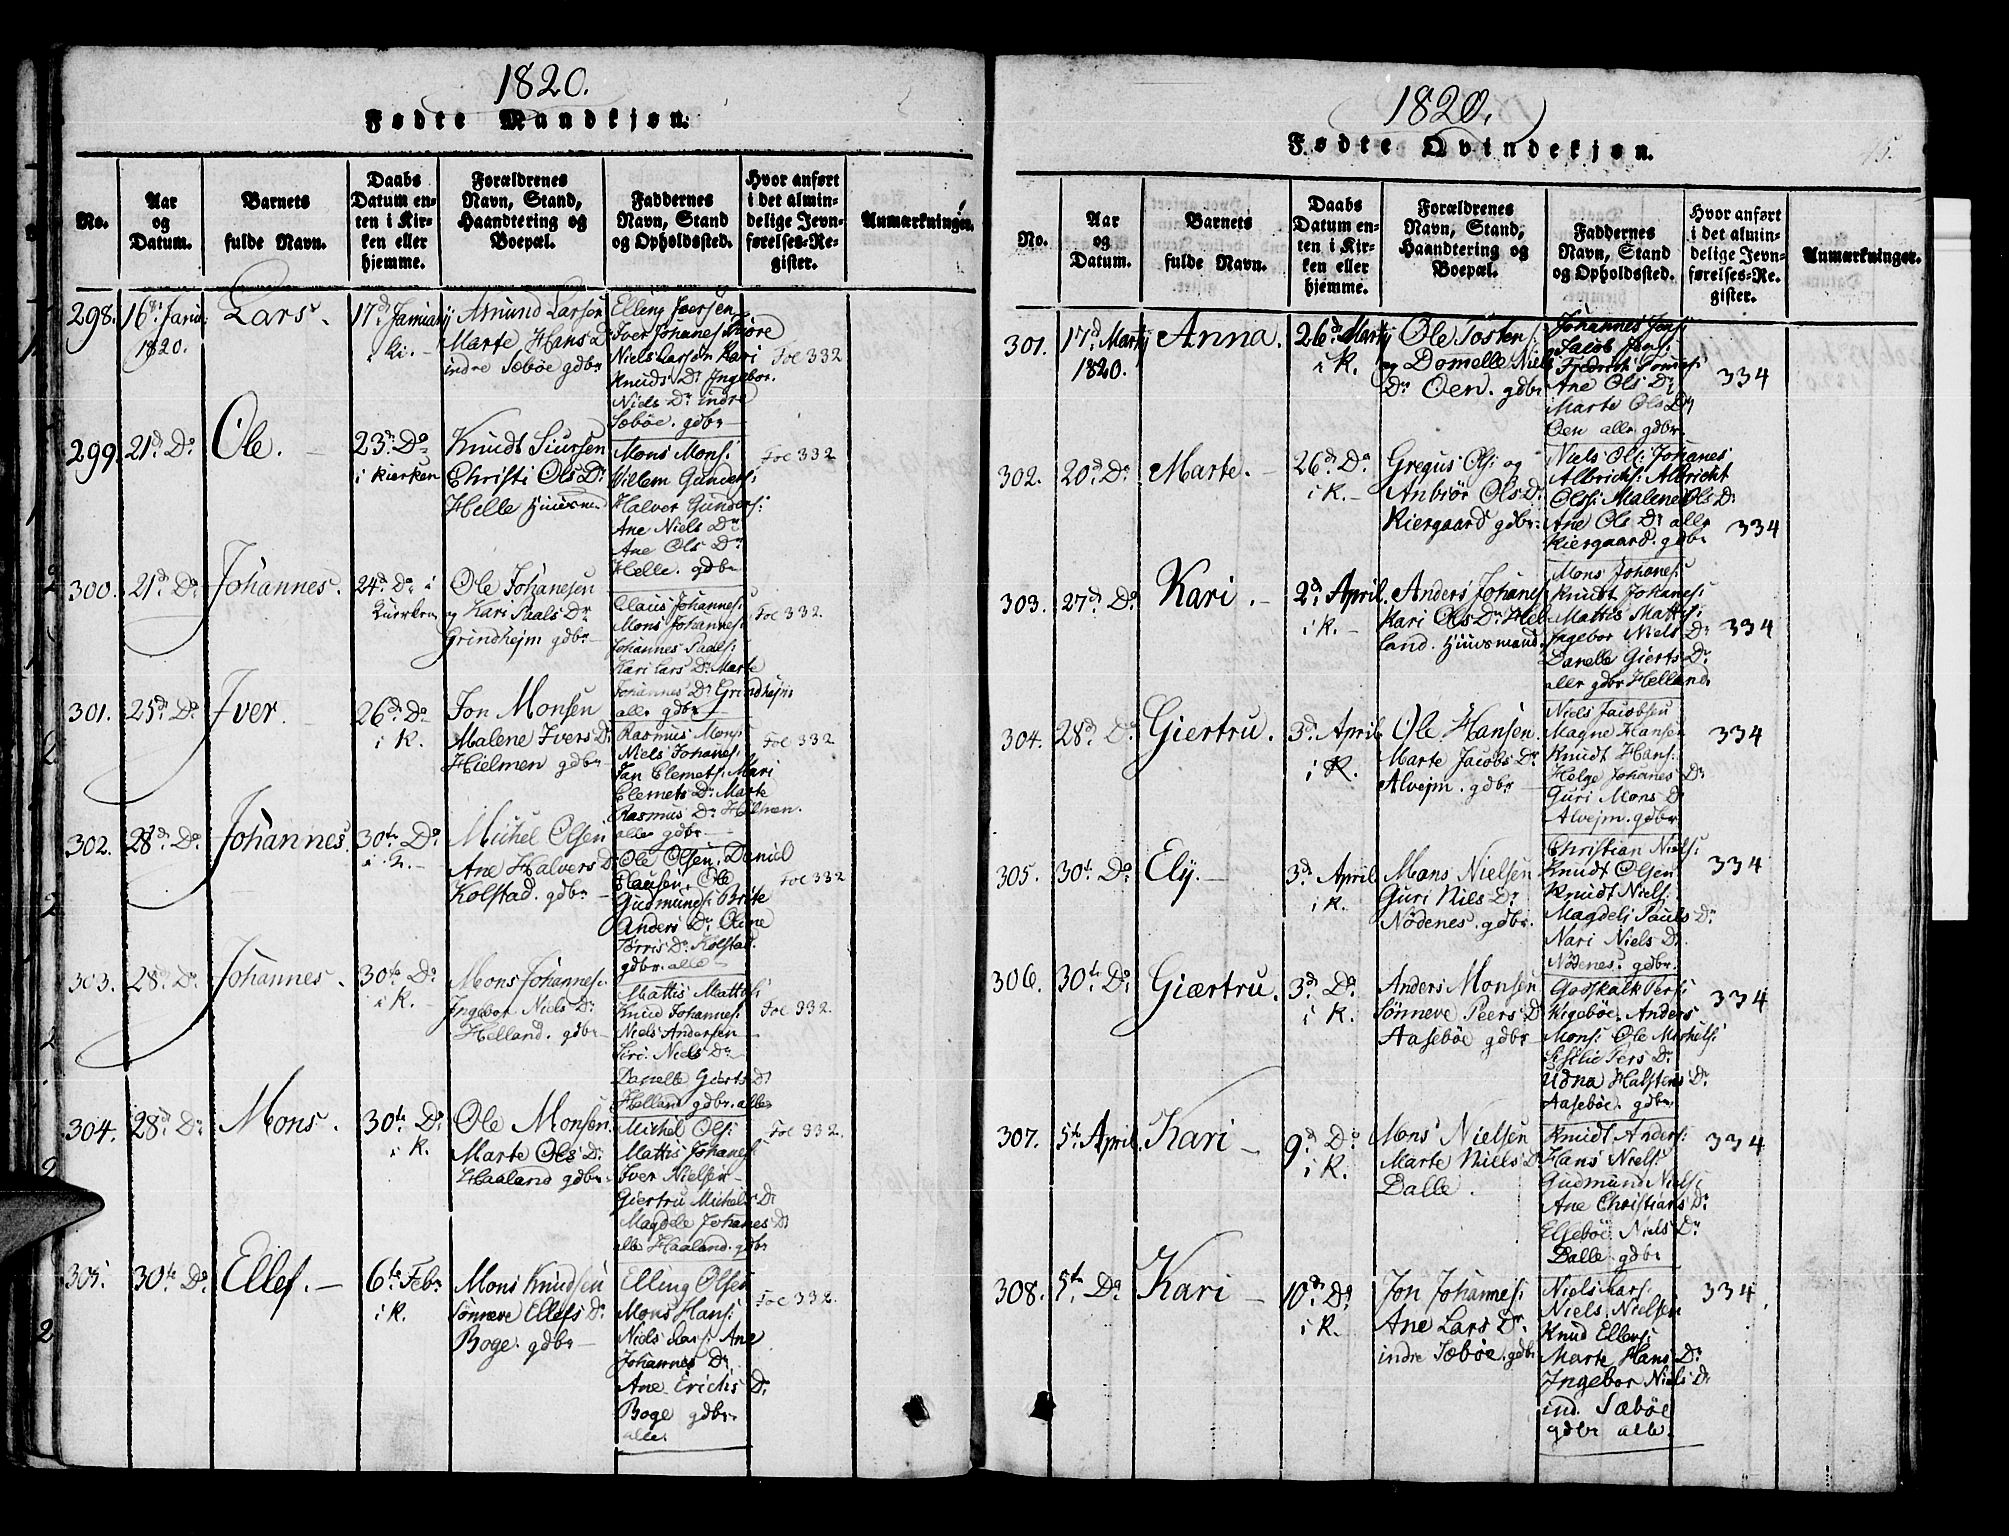 1820.
Fødte Mandkjøn.
No.
Aar
og
Datum.
Barnets
fulde Navn.
Daabs
Datum en-
ten i Kir-
ken eller
hjemme.
Forældrenes
Navn, Stand,
Haandtering og
Boepæl.
Faddernes
Navn, Stand
og Opholdssted.
Hvor anført
i det almin-
delige Jevn-
førelses-Re-
gister.
Anmærkninger.
298.
16de Janu:
1820.
Lars.
17d Januarij
i Ki.
Amund Larsen
Marte Hans D:
indre Sæbøe gdbr
Elleng Iversen
Iver Johanes: Thore
Niels Larsen Kari
Knuds Dr Ingebor.
Niels Dr indre
Sæbøe. gdbr
Foe 332
299.
21d Do
Ole.
23d Do
i kierken
Knudt Siursen
Christi Ols Dr
Helle Huusmd
Mons Mons:
Willem Gunders:
Halver Gunders:
Ane Niels Dr
Ane Ols Dr
Helle. gdbr
Foe 332
300.
21d Do
Johannes.
24d Do i
Kierken
Ole Johanesen
og Kari Paals Dr
Grindhejm gdbr
Claus Johannes:
Mons Johannes:
Johannes Paals:
Kari Lars Dr Marte
Johannes Dr Grindhejm
alle gdbr
Foe 332.
301.
25d Do
Iver.
26d Do
i K.
Jon Monsen
Malene Ivers Dr
Hielmen gdbr
Rasmus Mons:
Niels Johanes:
Jan Clemets: Mari
Clemets Dr Marte
Rasmus Dr Hielmen.
alle gdbr
Foe 332
302.
28d Do
Johannes.
30te Do
i K.
Michel Olsen
Ane Halvers D
Kolstad. gdbr
Ole Olsen, Daniel
Clausen, Ole
Gudmunds: Brite
Anders Dr Ane
Torris Dr Kolstad.
gdbr alle
Foe 332
303.
28d Do
Johannes.
30te Do
i K.
Mons Johannes:
Ingebor Niels Dr
Helland. gdbr
Mattis Mattis:
Knud Johannes:
Niels Andersen
Siri Niels Dr
Danelle Gierts Dr
Helland gdbr. alle
Foe 332.
304.
28d Do
Mons.
30te Do
i K.
Ole Monsen
Marte Ols Dr
Haaland gdbr.
Michel Ols:
Mattis Johanes:
Iver Nielsen
Giertru Michels Dr
Magdele Johanes Dr
alle Haaland. gdbr
Foe 332.
305.
30te Do
Ellef.
6te Febr
i K.
Mons Knudsen
Sønneve Ellefs Dr
Boge. gdbr
Elling Olsen
Mons Hans:
Niels Lars: Ane
Johannes Dr
Ane Erichs Dr
Boge gdbr.
alle.
Foe 332.
1820.
Fødte Qvindekjøn.
15.
No.
Aar
og
Datum.
Barnets
fulde Navn.
Daabs
Datum en-
ten i Kir-
ken eller
hjemme.
Forældrenes
Navn, Stand,
Haandtering og
Boepæl.
Faddernes
Navn, Stand
og Opholdssted.
Hvor anført
i det almin-
delige Jevn-
førelses-Re-
gister.
Anmærkninger.
301.
17d Martij
1820.
Anna.
26d Martij
i K.
Ole Tosten:
og Domelle Niels
Dr Oen. gdbr
Johannes Jons:
Jacob Jons:
Fredrich Tomes:
Ane Ols Dr
Marte Ols Dr
Oen alle gdbr.
334
302.
20d Do
Marte.
26d Do
i K.
Gregus Ols: og
Anbiør Ols Dr
Kiergaard gdbr.
Niels Ols: Johanes
Albrichs: Albricht
Ols: Malene Ols Dr
Ane Ols Dr alle
Kiergaard. gdbr
334
303.
27d Do
Kari.
2d April.
i K.
Anders Johanes:
Kari Ols Dr Hel
land. Huusmand.
Mons Johanes:
Knudt Johanes:
Mattis Mattis:
Ingebor Niels Dr
Danelle Gierts Dr
alle gdbr Helland.
334
304.
28d Do
Giertru.
3d April
i K.
Ole Hansen
Marte Jacobs Dr
Alvejm. gdbr
Niels Jacobsen
Magne Hansen
Knudt Hans:
Helge Johanes Dr
Guri Mons D
Alvejm. gdbr
334
305.
30te Do
Ely.
3d April
i K.
Mons Nielsen
Guri Nils Dr
Nødenes. gdbr.
Christian Niels:
Knudt Olsen
Knudt Niels:
Magdeli Pauls Dr
Nari Niels Dr
Nødenes. gdbr.
334
306.
30te Do
Giærtru.
3d Do
i K.
Anders Monsen
Sønneve Peers D
Aasebøe gdbr
Godskalk Pers:
Kigebøe. Anders
Mons: Ole Michels:
Sesilie Pers Dr
Udna Halstens Dr
Aasebøe. gdbr.
334
307.
5te April
Kari
9d Do
i K.
Mons Nielsen
Marte Niels D
Dalle.
Knudt Anders:
Hans Niels:
Gudmund Niels:
Ane Christians Dr
Elsebøe Niels Dr
Dalle. gdbr
334
308.
5te Do
Kari
10d Do
i K.
Jon Johannes:
Ane Lars Dr
indre Sæbøe. gdbr
Niels Lars:
Niels Nielsen
Knud Ellens:
Marte Hans Dr
Ingebor Niels Dr
ind. Sæbøe
gdbr alle.
334.